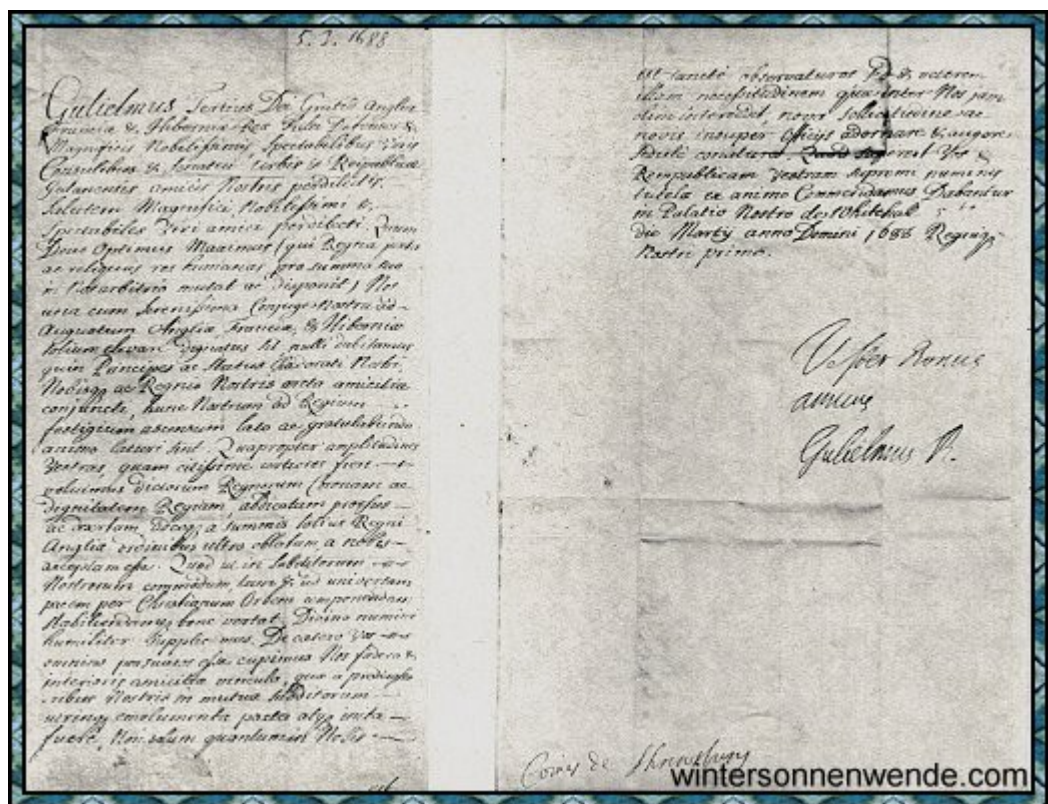 5. 3. 1688
Gulielmus Tertius Dei Gratia Angliæ
Franciæ & Hiberniæ Rex Fidei Defensor &
Magnificis Nobilissimis Spectabilibus Viris
Consulibus & Senatui Urbis & Reipublicæ
Gedanensis amicis Nostris perdilectis
Salutem Magnifici, Nobilissimi &
Spectabiles Viri amici perdilecti. Quum
Deus Optimus Maximus (qui Regna
ac religiones res humanas pro summo suo
arbitrio mutat ac disponit) Nos
una cum Serenissima Conjuge Nostra ad
Augustum Angliæ Franciæ, & Hiberniæ
Solium elevare dignatus sit nulli dubitamus
quin Principes ac Status
Nobisq ac Regnis Nostris arcta amicitia
conjuncti, hunc Nostrum ad Regium
fastigium ascensum læto ac gratulabundo
animo laturi sint. Quapropter amplitudines
Vestras, quam citissime certiores fieri
voluimus dictorum Regnorum Coronam ac
dignitatem Regiam, abdicatam prorsus
ac a summis totius Regni
Angliæ ordinibus ultro oblatam a nobis
acceptam esse. Quod ut in Subditorum
Nostrorum commodum, tum & ad universam
pacem per Christianum Orbem componendam
stabiliendamq bene vertat, Divino numini
humiliter supplicamus. De cætero Vos
omnino persuasos esse cupimus Nos fædera &
interioris amicitiæ vincula, quæ a prædecesso
ribus Nostris in mutua Subditorum
utrinq emolumenta pacta atq inita
fuere, Non solum quantum in Nobis
est
est sancte observaturos sed & veterem
illam necessitudinem quæ inter Nos jam
olim intercedit, nova sollicitudine ac
novis insuper officiis adornare & augere
sedulo Quod superest Vos &
Rempublicam Vestram supremi numinis
tutela ex animo Commendamus Dabantur
in Palatio Nostro de Whitehal 5
die Martij anno Domini 1688 Regniq
Nostri primo.
Vester Bonus
amicus
Gulielmus R.
Shrewsbury
wintersonnenwende.com